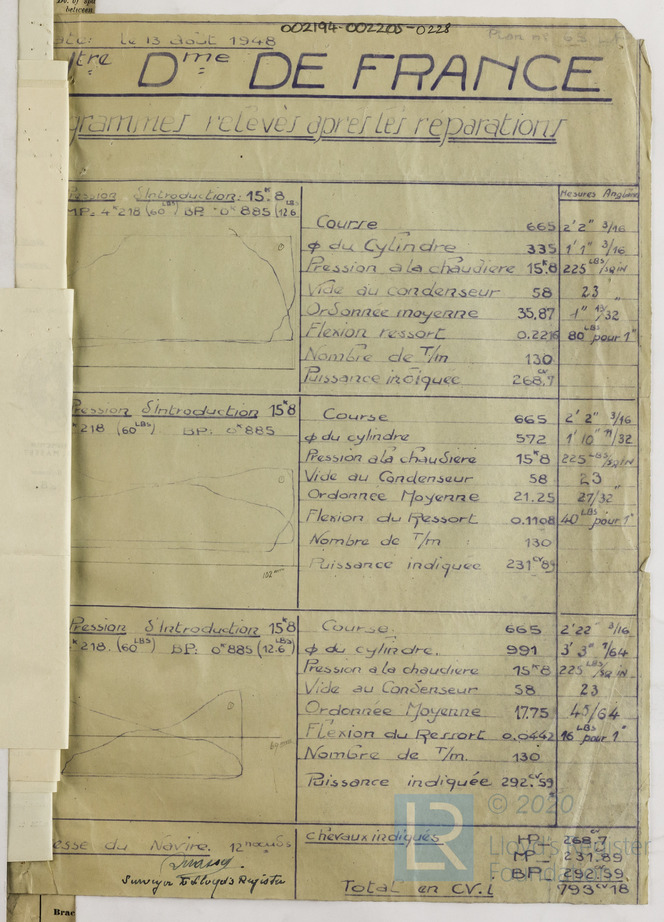 between
002194-002205-0228
Date: le 13 août 1948
Plan n°
tre Dme DE FRANCE
grammes relevès après les reparations
Pression d'Introduction: 15k8
MP: 4k218 (60LBS) BP: 0k885 (12.6LBS
①
Mesures Anglaises
Course 665 2' 2" 3/16
φ du Cylindre 335 1' 1" 3/16
Pression a la chaudiere 15k8 225 LBS/sq IN
Vide au condenseur 58 23"
Ordonnée moyenne 35,87 1" 13/32
Flexion ressort 0.2216 80 LBS pour 1"
Nombre de T/m 130
Puissance indiquee 268.cv7
Pression d'Introduction 15k8
k218 (60LBS) BP: 0k885
102 mm
Course 665 2' 2" 3/16
φ du cylindre 572 1' 10" 11/32
Pression a la chaudiere 15k8 225 LBS/sq IN
Vide au Condenseur 58 23"
Ordonnee Moyenne 21.25 27/32
Flexion du Ressort 0.1108 40 LBS pour 1"
Nombre de T/m : 130
Puissance indiquee 231cv89
Pression d'Introduction 15k8
k218. (60LBS) BP: 0k885 (12.6LBS)
①
89 mm
Course. 665 2'22" 3/16
φ du cylindre. 991 3' 3" 1/64
Pression a la chaudiere 15k8 225 LBS/sq IN
Vide au Condenseur 58 23
Ordonnee Moyenne 17.75 45/64
Flexion du Ressort 0.0442 16 LBS pour 1"
Nombre de T/m. 130
Puissance indiquée 292.cv59
esse du Navire. 12 nœuds
Surveyor to Lloyd's Register
chevaux indiqués HP_ 268.cv7
MP_ 231.89
BP_ 292.59.
Total en CV.i 793cv18
© 2020
LR
Lloyd's Register
Foundation
Brac